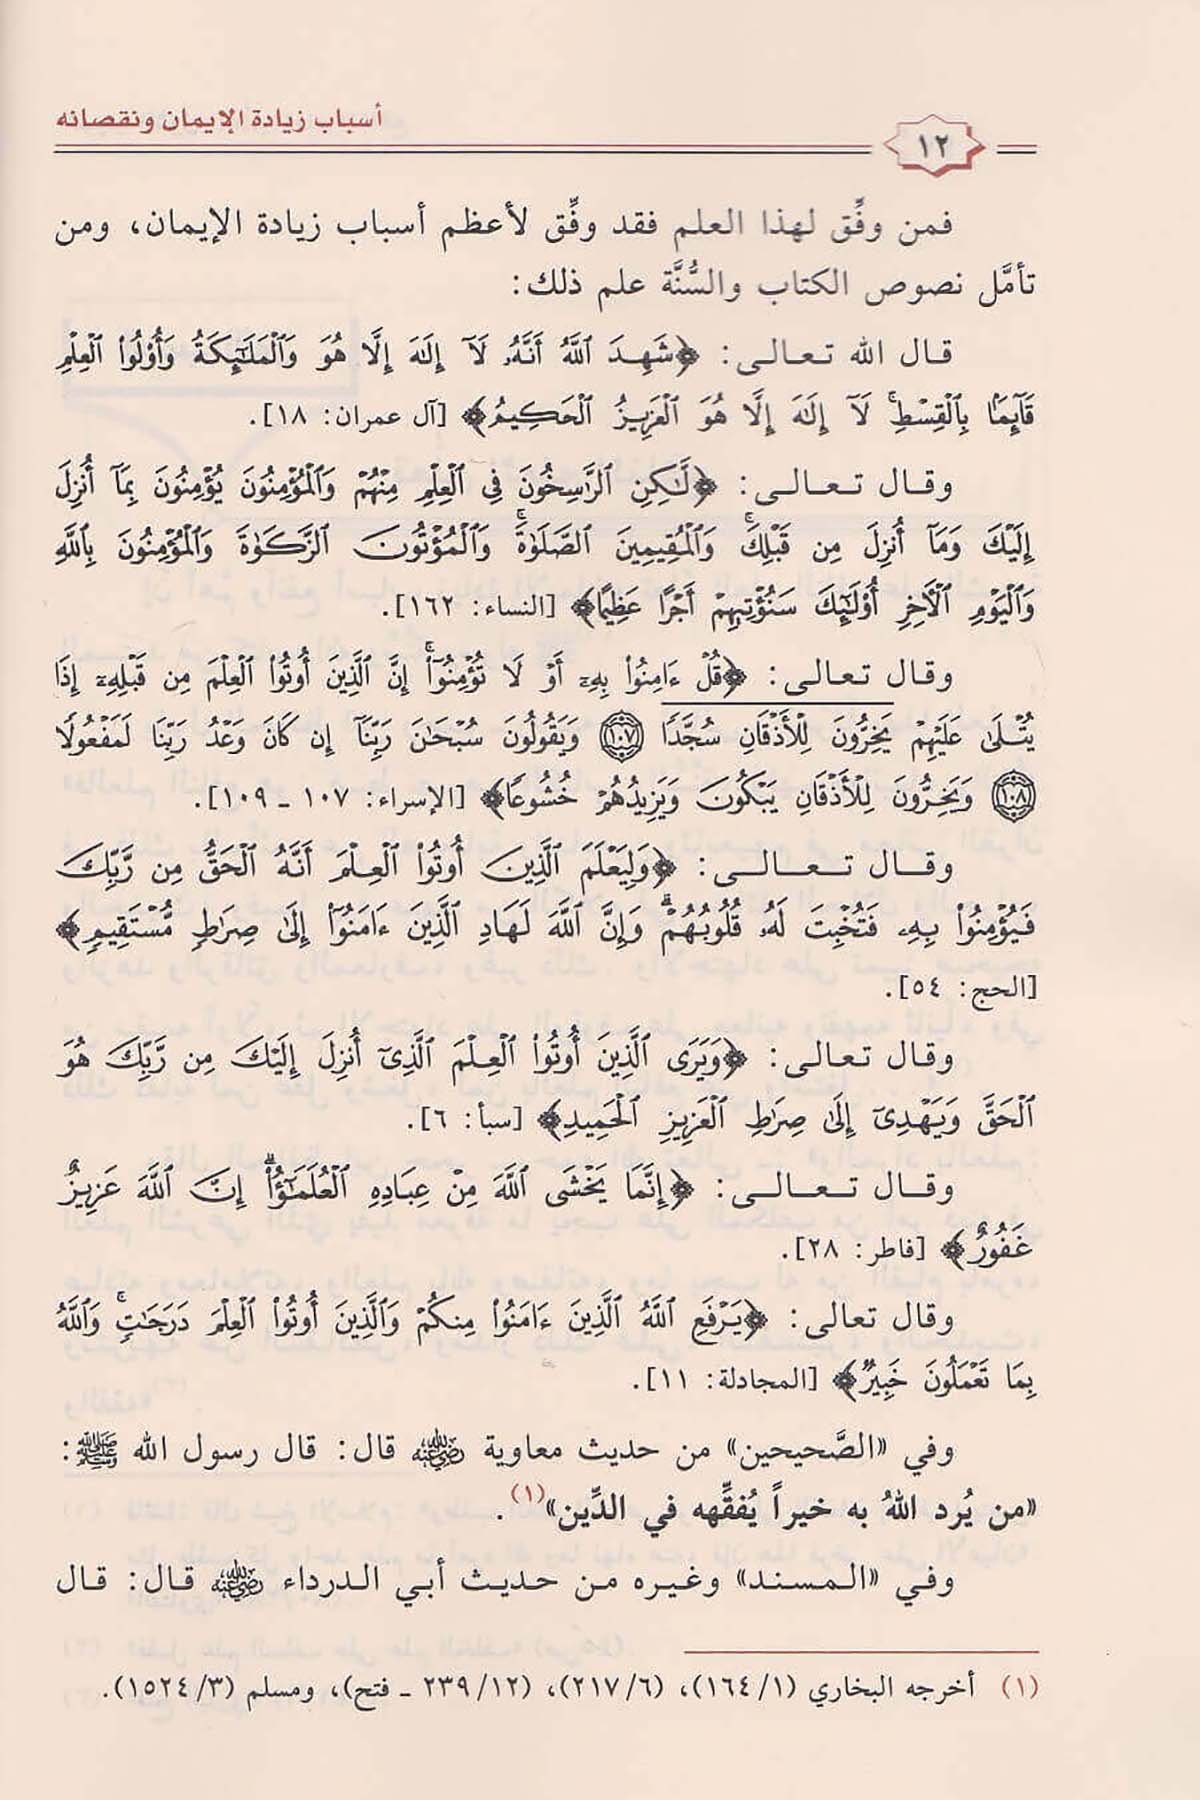 أسباب زيادة الإيمان ونقصانه
١٢
فمن وفِّق لهذا العلم فقد وفِّق لأعظم أسباب زيادة الإيمان، ومن
تأمَّل نصوص الكتاب والسُّنَّة علم ذلك:
قال الله تعالى: ﴿شَهِدَ ٱللَّهُ أَنَّهُۥ لَآ إِلَٰهَ إِلَّا هُوَ وَٱلْمَلَٰٓئِكَةُ وَأُو۟لُوا۟ ٱلْعِلْمِ
قَآئِمًۢا بِٱلْقِسْطِۚ لَآ إِلَٰهَ إِلَّا هُوَ ٱلْعَزِيزُ ٱلْحَكِيمُ﴾ [آل عمران: ١٨].
وقال تعالى: ﴿لَّٰكِنِ ٱلرَّٰسِخُونَ فِى ٱلْعِلْمِ مِنْهُمْ وَٱلْمُؤْمِنُونَ يُؤْمِنُونَ بِمَآ أُنزِلَ
إِلَيْكَ وَمَآ أُنزِلَ مِن قَبْلِكَۚ وَٱلْمُقِيمِينَ ٱلصَّلَوٰةَۚ وَٱلْمُؤْتُونَ ٱلزَّكَوٰةَ وَٱلْمُؤْمِنُونَ بِٱللَّهِ
وَٱلْيَوْمِ ٱلْءَاخِرِ أُو۟لَٰٓئِكَ سَنُؤْتِيهِمْ أَجْرًا عَظِيمًا﴾ [النساء: ١٦٢].
وقال تعالى: ﴿قُلْ ءَامِنُوا۟ بِهِۦٓ أَوْ لَا تُؤْمِنُوٓا۟ۚ إِنَّ ٱلَّذِينَ أُوتُوا۟ ٱلْعِلْمَ مِن قَبْلِهِۦٓ إِذَا
يُتْلَىٰ عَلَيْهِمْ يَخِرُّونَ لِلْأَذْقَانِ سُجَّدًا ١٠٧ وَيَقُولُونَ سُبْحَٰنَ رَبِّنَآ إِن كَانَ وَعْدُ رَبِّنَا لَمَفْعُولًا
١٠٨ وَيَخِرُّونَ لِلْأَذْقَانِ يَبْكُونَ وَيَزِيدُهُمْ خُشُوعًا﴾ [الإسراء: ١٠٧ ـ ١٠٩].
وقال تعالى: ﴿وَلِيَعْلَمَ ٱلَّذِينَ أُوتُوا۟ ٱلْعِلْمَ أَنَّهُ ٱلْحَقُّ مِن رَّبِّكَ
فَيُؤْمِنُوا۟ بِهِۦ فَتُخْبِتَ لَهُۥ قُلُوبُهُمْۗ وَإِنَّ ٱللَّهَ لَهَادِ ٱلَّذِينَ ءَامَنُوٓا۟ إِلَىٰ صِرَٰطٍ مُّسْتَقِيمٍ﴾
[الحج: ٥٤].
وقال تعالى: ﴿وَيَرَى ٱلَّذِينَ أُوتُوا۟ ٱلْعِلْمَ ٱلَّذِىٓ أُنزِلَ إِلَيْكَ مِن رَّبِّكَ هُوَ
ٱلْحَقَّ وَيَهْدِىٓ إِلَىٰ صِرَٰطِ ٱلْعَزِيزِ ٱلْحَمِيدِ﴾ [سبأ: ٦].
وقال تعالى: ﴿إِنَّمَا يَخْشَى ٱللَّهَ مِنْ عِبَادِهِ ٱلْعُلَمَٰٓؤُا۟ۗ إِنَّ ٱللَّهَ عَزِيزٌ
غَفُورٌ﴾ [فاطر: ٢٨].
وقال تعالى: ﴿يَرْفَعِ ٱللَّهُ ٱلَّذِينَ ءَامَنُوا۟ مِنكُمْ وَٱلَّذِينَ أُوتُوا۟ ٱلْعِلْمَ دَرَجَٰتٍۚ وَٱللَّهُ
بِمَا تَعْمَلُونَ خَبِيرٌ﴾ [المجادلة: ١١].
وفي «الصَّحيحين» من حديث معاوية رضي الله عنه قال: قال رسول الله ﷺ:
«من يُرد اللهُ به خيراً يُفقِّهه في الدِّين»(١).
وفي «المسند» وغيره من حديث أبي الدرداء رضي الله عنه قال: قال
(١) أخرجه البخاري (١/ ١٦٤)، (٦/ ٢١٧)، (١٢/ ٢٣٩ ـ فتح)، ومسلم (٣/ ١٥٢٤).